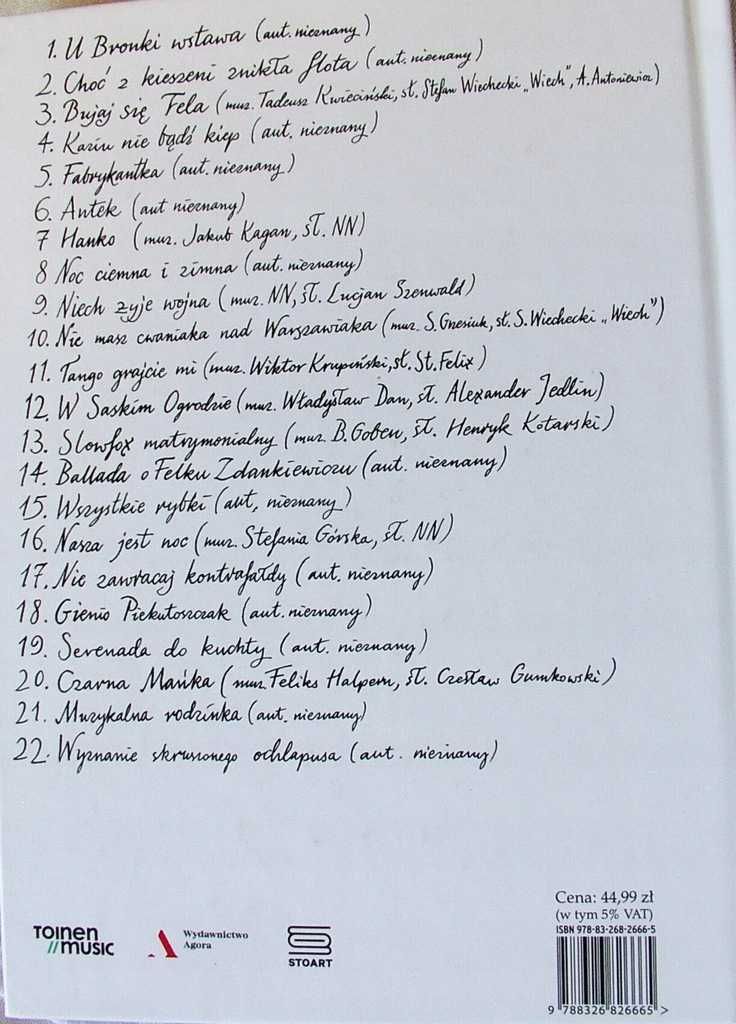 1. U Bronki wstawa (aut. nieznany)
2. Choć z kieszeni znikła flota (aut. nieznany)
3. Bujaj się Fela (muz. Tadeusz Kwieciński, sł. Stefan Wiechecki „Wiech", A. Antoniewicz)
4. Kaziu nie bądź kiep (aut. nieznany)
5. Fabrykantka (aut. nieznany)
6. Antek (aut nieznany)
7 Hanko (muz. Jakub Kagan, sł. NN)
8 Noc ciemna i zimna (aut. nieznany)
9. Niech żyje wojna (muz. NN, sł. Lucjan Szenwald)
10. Nie masz cwaniaka nad Warszawiaka (muz. S. Grzesiuk, sł. S. Wiechecki „Wiech")
11. Tango grajcie mi (muz. Wiktor Krupiński, sł. St. Felix)
12. W Saskim Ogrodzie (muz. Władysław Dan, sł. Alexander Jedlin)
13. Slowfox matrymonialny (muz. B. Goben, sł. Henryk Kotarski)
14. Ballada o Felku Zdankiewiczu (aut. nieznany)
15. Wszystkie rybki (aut, nieznany)
16. Nasza jest noc (muz. Stefania Górska, sł. NN)
17. Nie zawracaj kontrafałdy (aut. nieznany)
18. Gienio Piekutoszczak (aut. nieznany)
19. Serenada do kuchty (aut. nieznany)
20. Czarna Mańka (muz. Feliks Halpern, sł. Czesław Gumkowski)
21. Muzykalna rodzinka (aut. nieznany)
22. Wyznanie skruszonego ochlapusa (aut. nieznany)
Cena: 44,99 zł
(w tym 5% VAT)
ISBN 978-83-268-2666-5
TOINEN
//MUSIC
Wydawnictwo
Agora
STOART
9 788326 826665 >